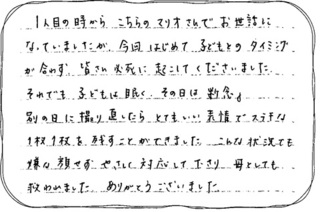 1人目の時から こちらのマリオさんで お世話に
なっていましたが、今回 はじめて 子どもとの タイミング
が合わず 皆さん 必死に 起こしてくださいました
それでも 子どもは眠く、その日は 断念。
別の日に 撮り直したら とてもいい 表情で ステキな
1枚1枚を 残すことができました。こんな 状況でも
嫌な 顔せず やさしく 対応して下さり 母としても
救われました ありがとうございました